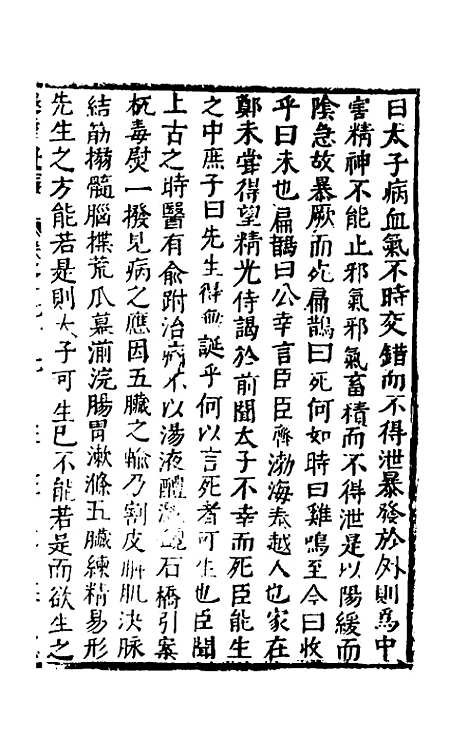 曰太子病血氣不時交錯而不得泄暴發於外則爲中
害精神不能止邪氣邪氣畜積而不得泄是以陽緩而
陰急故暴厥而死扁鵲曰死何如時曰雞鳴至今曰收
乎曰未也扁鵲曰公幸言臣臣齊渤海秦越人也家在
鄭未嘗得望精光侍謁於前聞太子不幸而死臣能生
之中庶子曰先生得無誕乎何以言死者可生也臣聞
上古之時醫有俞跗治病不以湯液醴石橋引案
杬毒熨一撥見病之應因五臟之輸乃割皮解肌决脉
結筋搦髓腦揲荒瓜幕湔浣腸胃漱滌五臟練精易形
先生之方能若是則太子可生已不能若是而欲生之